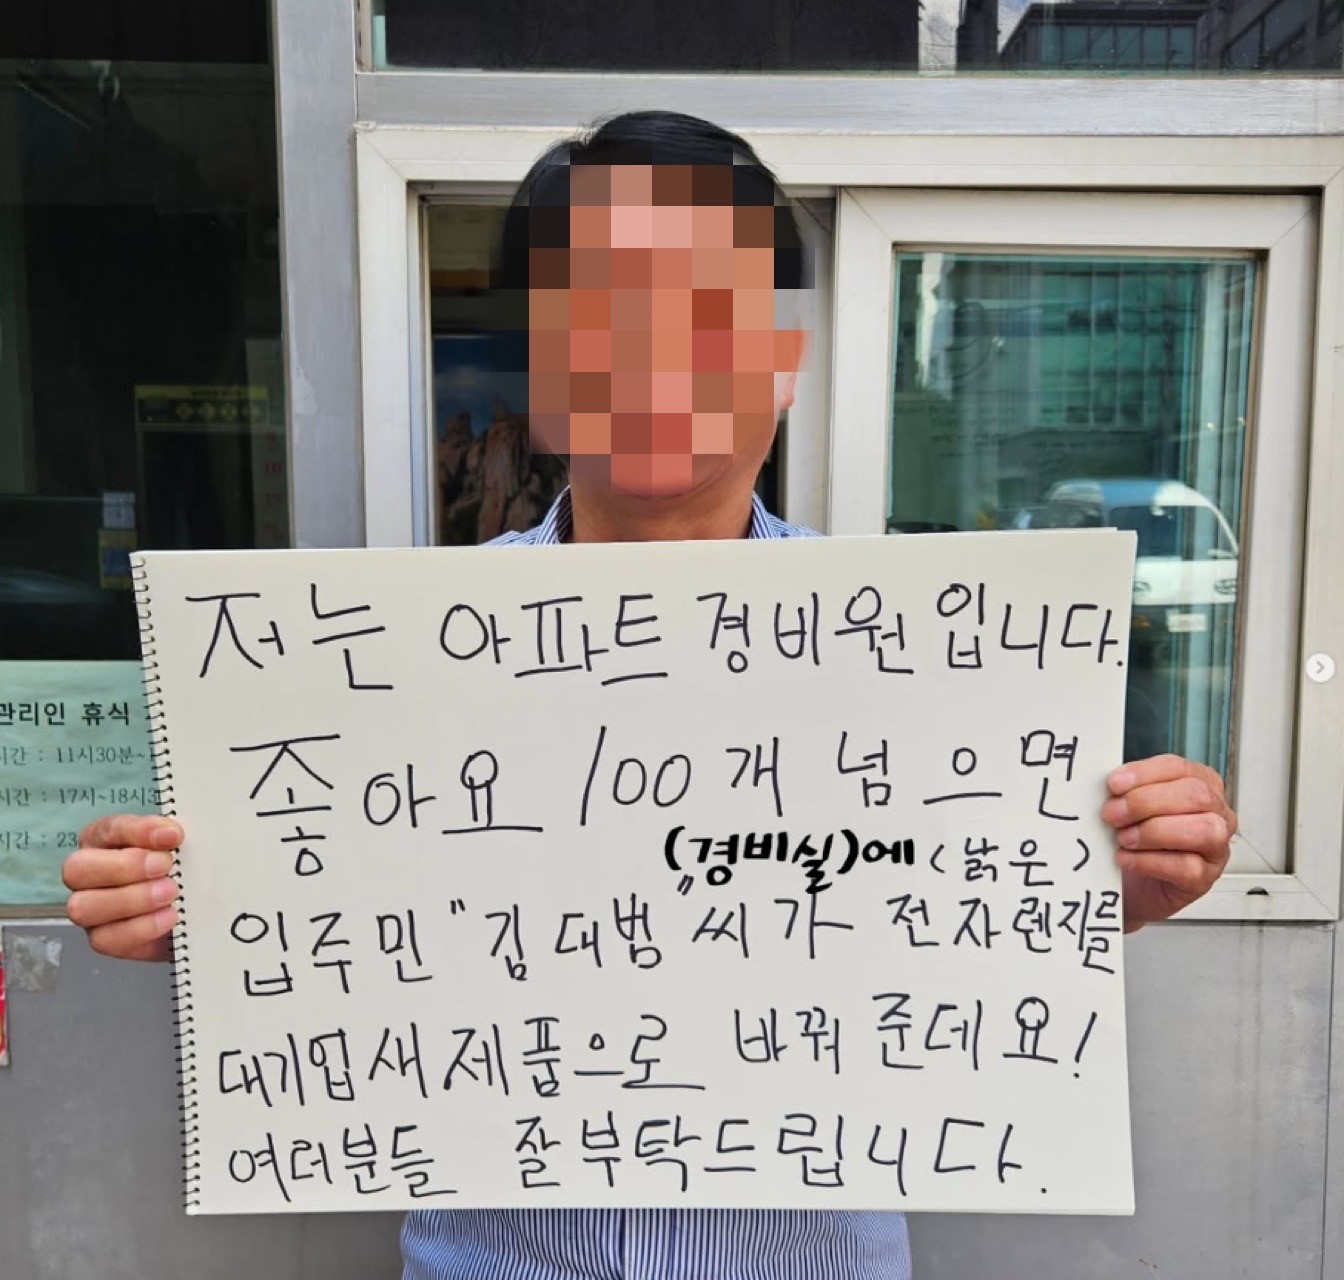 저는 아파트 경비원입니다.
좋아요 100개 넘으면
(경비실)에 (낡은)
입주민 "김대범" 씨가 전자렌지를
대기업 새제품으로 바꿔준데요!
여러분들 잘부탁드립니다.
관리인 휴식
시간 : 11시30분~
시간 : 17시~18시3
시간 : 23